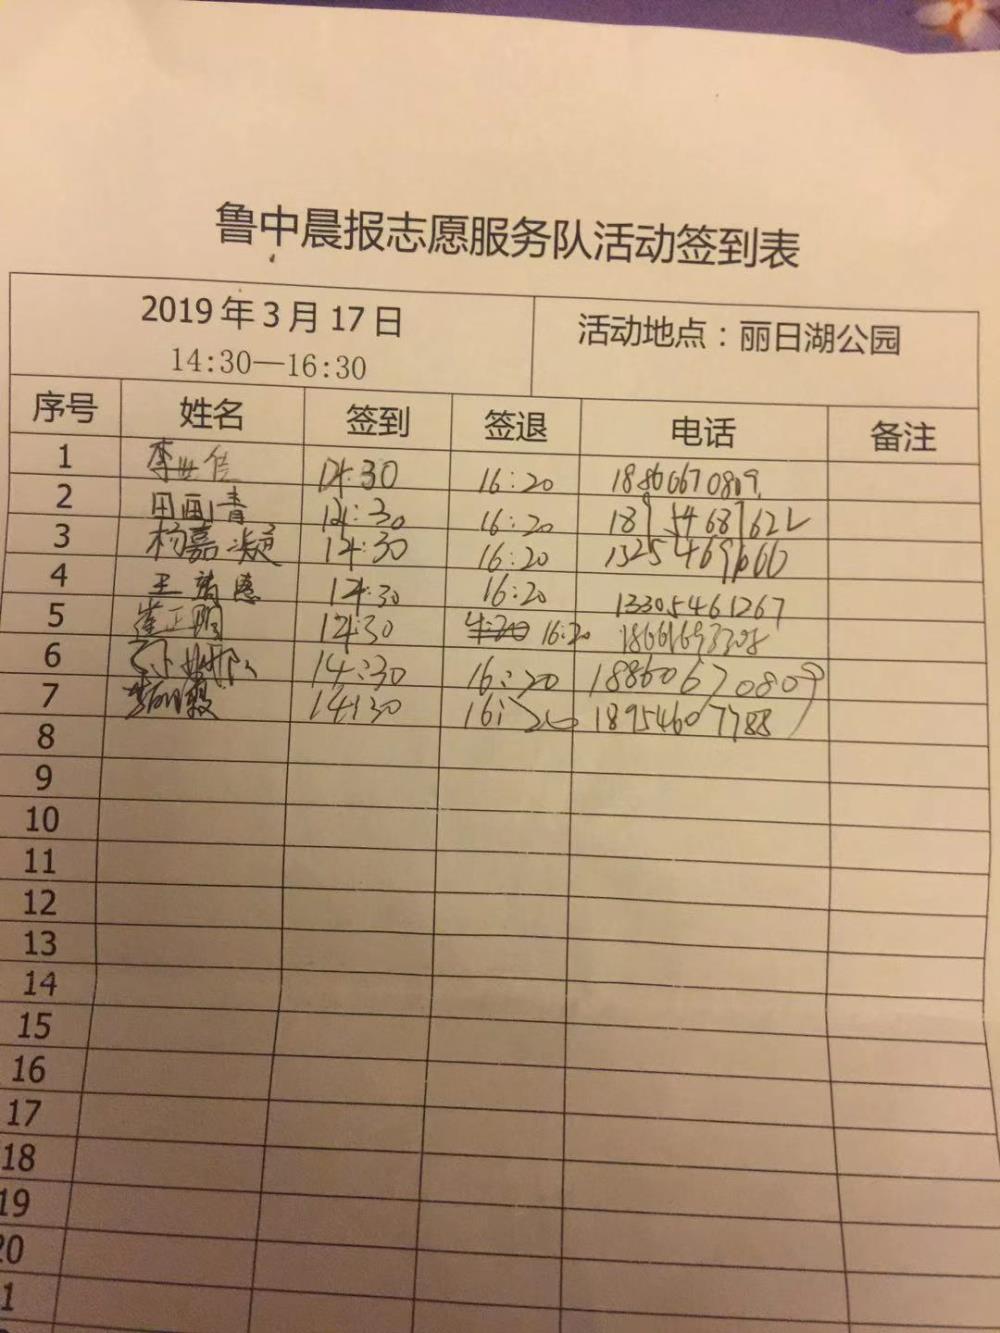 鲁中晨报志愿服务队活动签到表
2019年3月17日 活动地点：丽日湖公园
14:30—16:30
序号 姓名 签到 签退 电话 备注
1 李 佳 14:30 16:20 18860670809
2 田画青 14:30 16:20
3 杨嘉凝 14:30 16:20 13254691660
4 王 14:30 16:20 13305461267
5 崔正 14:30 16:20
6 14:30 16:20 18860670809
7 14:30 16:20 18954607788
8
9
10
11
12
13
14
15
16
17
18
19
20
1